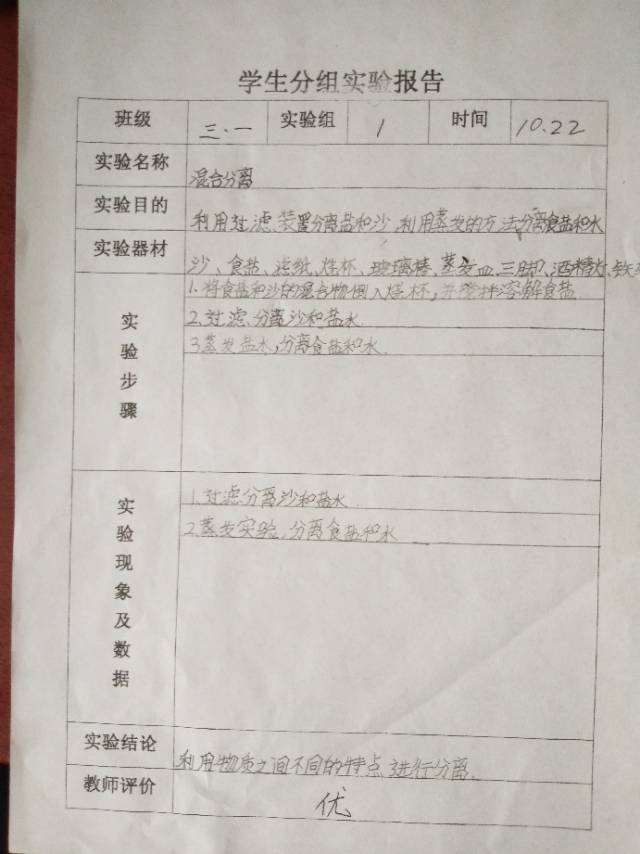 学生分组实验报告
班级 三.一 实验组 1 时间 10.22
实验名称 混合分离
实验目的 利用过滤、装置分离盐和沙,利用蒸发的方法分离食盐和水
实验器材 沙、食盐、滤纸、烧杯、玻璃棒、蒸发皿、三脚、酒精灯、铁
实验步骤 1.将食盐和沙的混合物倒入烧杯,并搅拌溶解食盐.
2.过滤、分离沙和盐水.
3.蒸发盐水,分离食盐和水.
实验现象及数据 1.过滤分离沙和盐水.
2.蒸发实验,分离食盐和水
实验结论 利用物质之间不同的特点进行分离.
教师评价 优